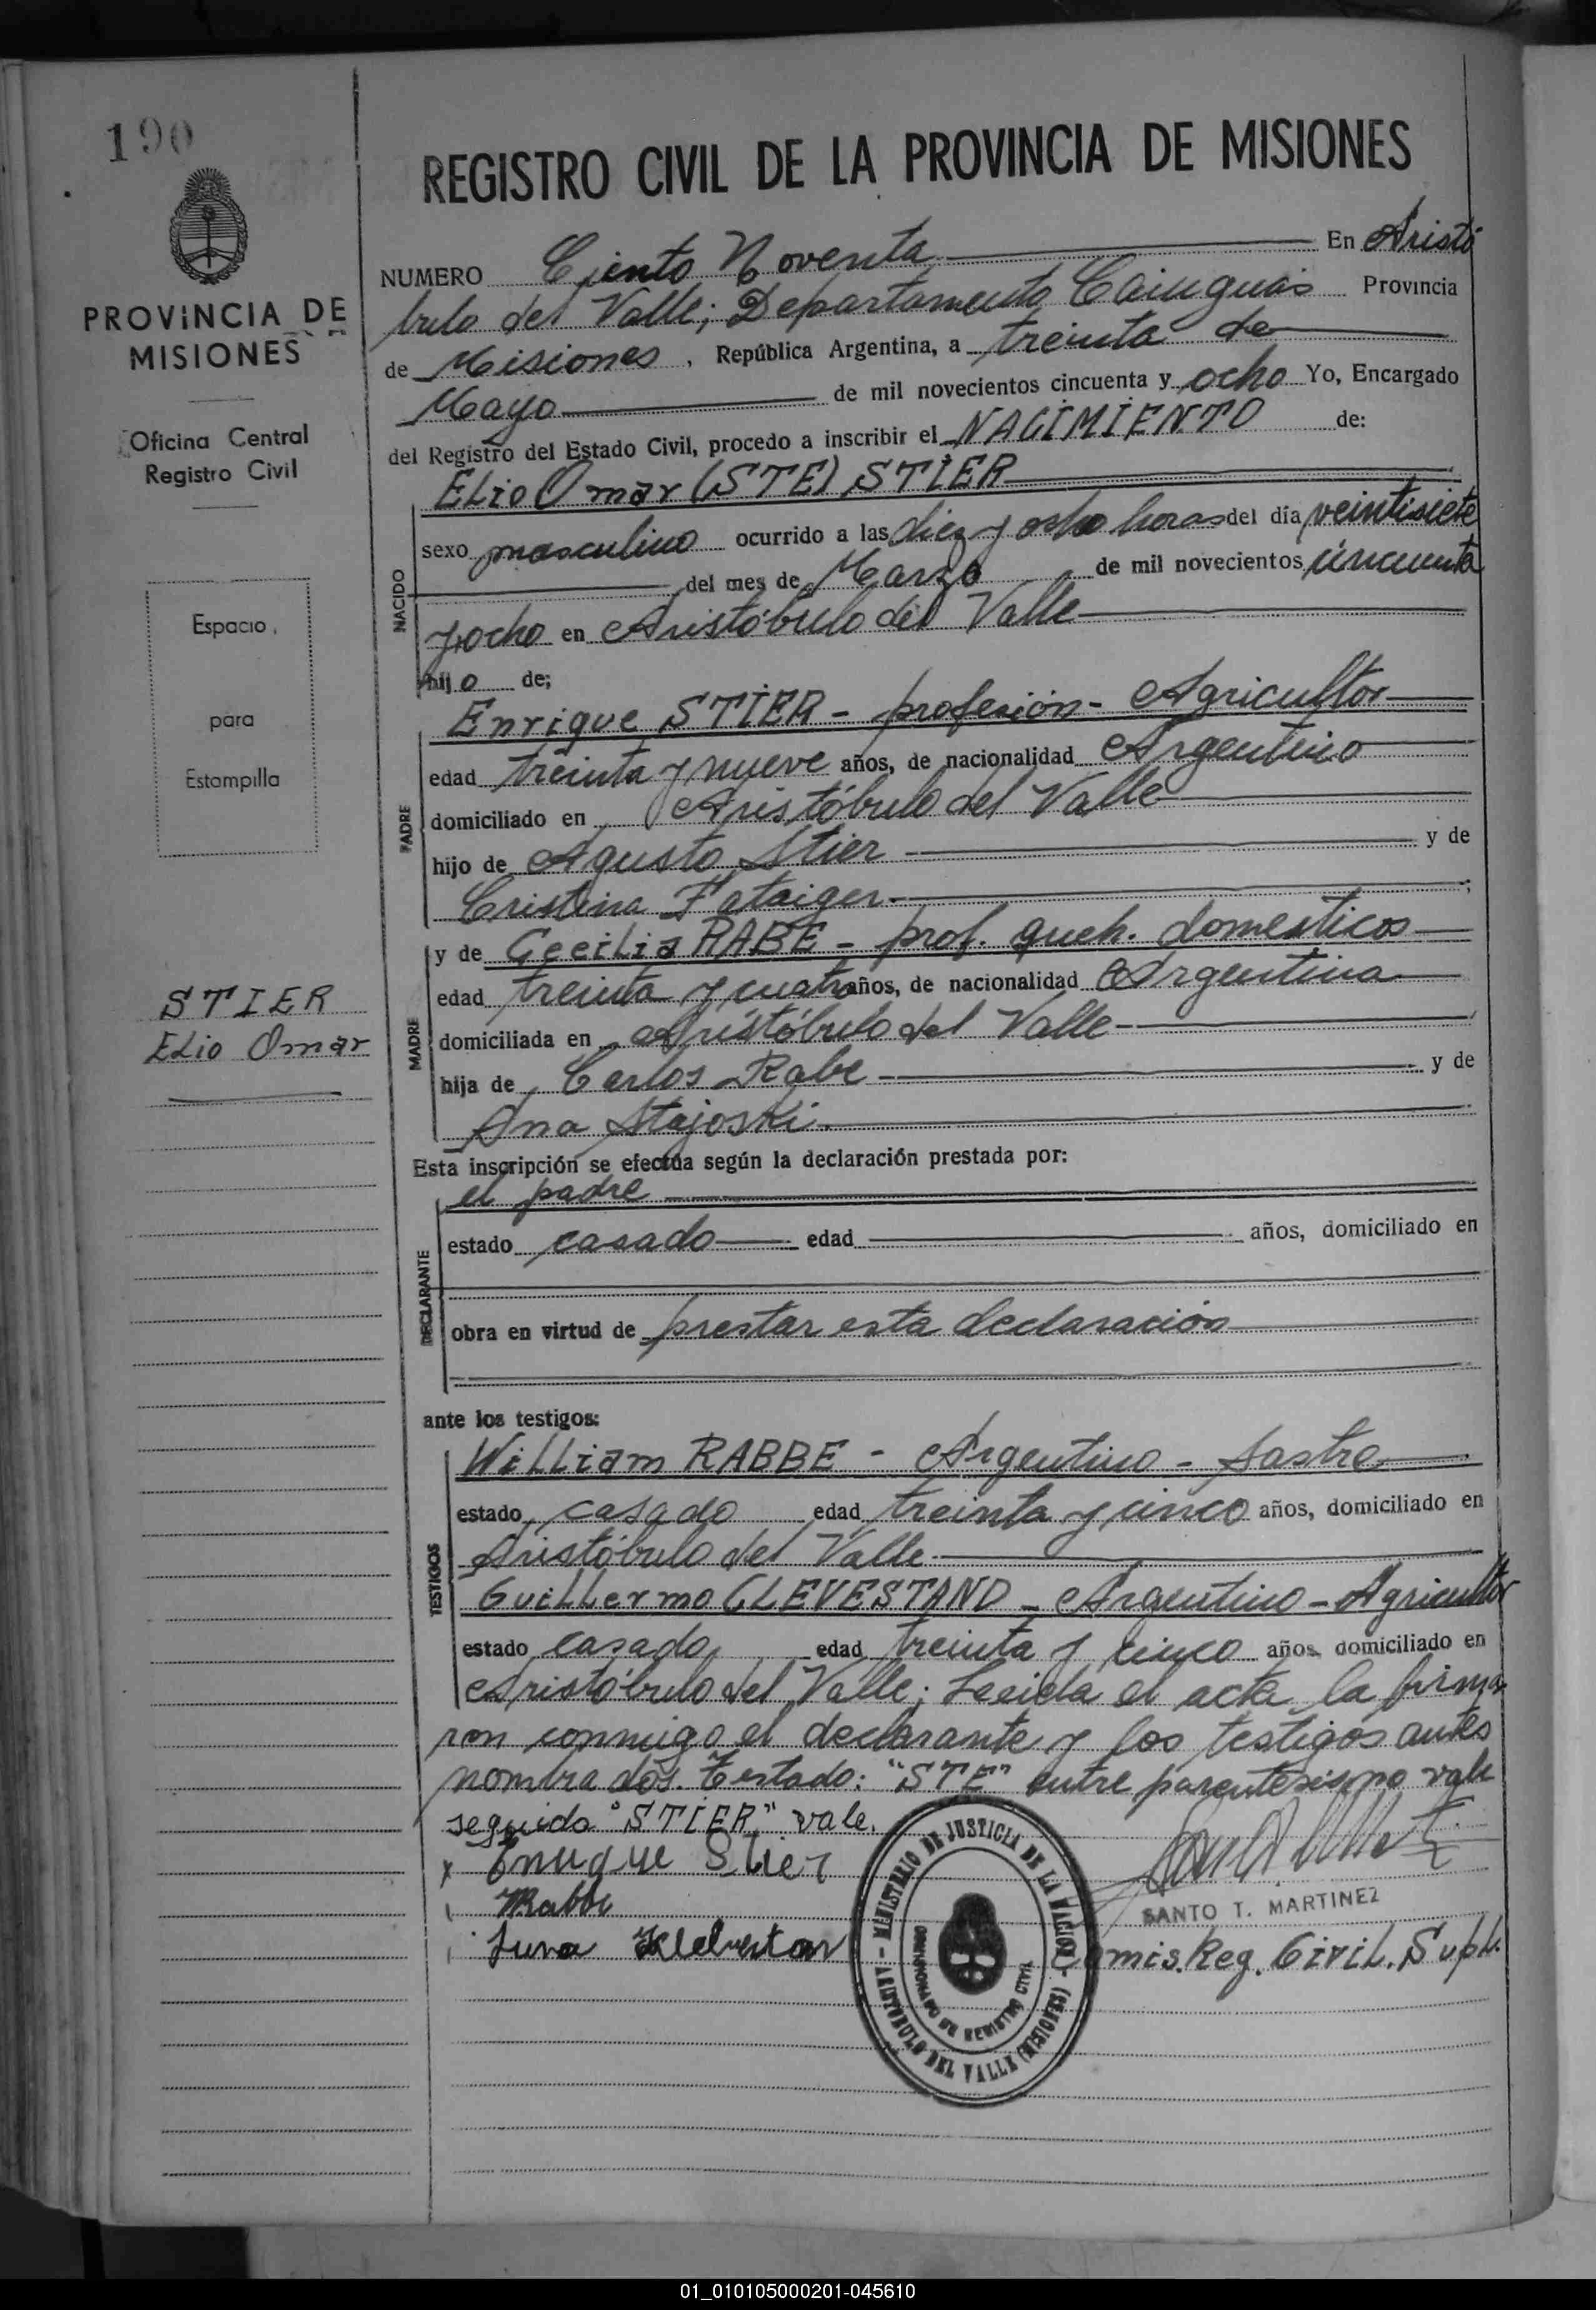 190
PROVINCIA DE
MISIONES
Oficina Central
Registro Civil
Espacio
para
Estampilla
STIER
Elio Omar
REGISTRO CIVIL DE LA PROVINCIA DE MISIONES
NUMERO Ciento Noventa En Aristó
bulo del Valle; Departamento Cainguás Provincia
de Misiones, República Argentina, a treinta de
Mayo de mil novecientos cincuenta y ocho Yo, Encargado
del Registro del Estado Civil, procedo a inscribir el NACIMIENTO de:
NACIDO
Elio Omar (STE) STIER
sexo masculino ocurrido a las diez y ocho horas del día veintisiete
del mes de Marzo de mil novecientos cincuenta
y ocho en Aristóbulo del Valle
hijo de;
PADRE
Enrique STIER - profesión - Agricultor
edad treinta y nueve años, de nacionalidad Argentino
domiciliado en Aristóbulo del Valle
hijo de Agusto Stier y de
Cristina Fataiger
MADRE
y de Cecilia RABE - prof. queh. domesticos
edad treinta y cuatro años, de nacionalidad Argentina
domiciliada en Aristóbulo del Valle
hija de Carlos Rabe y de
Ana Stajoski
Esta inscripción se efectúa según la declaración prestada por:
DECLARANTE
el padre
estado casado edad años, domiciliado en
obra en virtud de prestar esta declaración
ante los testigos:
TESTIGOS
William RABBE - Argentino - Sastre
estado casado edad treinta y cinco años, domiciliado en
Aristóbulo del Valle
Guillermo CLEVESTAND - Argentino - Agricultor
estado casado edad treinta y cinco años, domiciliado en
Aristóbulo del Valle; Leeida el acta la firma
ron conmigo el declarante y los testigos antes
nombrados. Testado: "STE" entre parentesis no vale
seguido "STIER" vale.
x Enrique Stier
Rabbe
SANTO T. MARTINEZ
Comis. Reg. Civil. Supl.
MINISTERIO DE JUSTICIA DE LA NACION
COMISIONADO DE REGISTRO CIVIL
ARISTOBULO DEL VALLE (MISIONES)
01_010105000201-045610